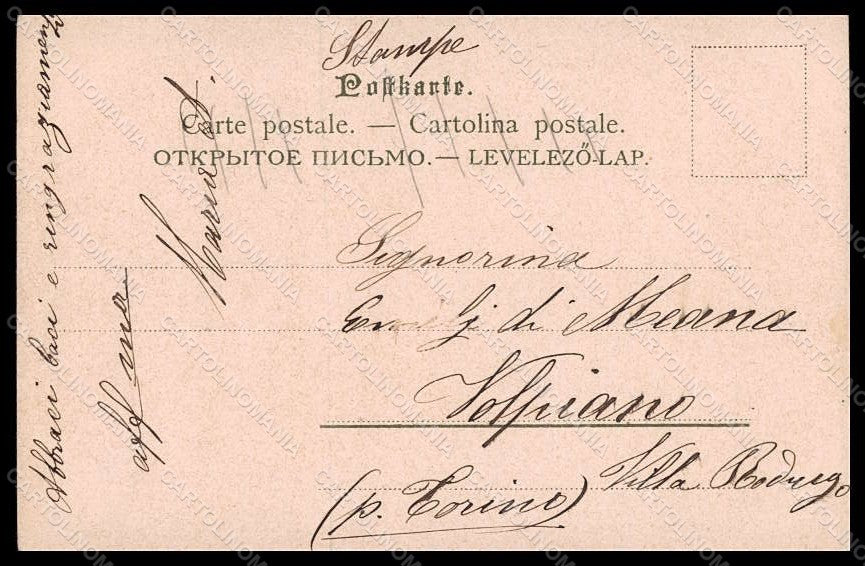 Stampe
Postkarte.
Carte postale. — Cartolina postale.
ОТКРЫТОЕ ПИСЬМО. — LEVELEZŐ-LAP.
Signorina
Emily di Meana
Volpiano
Villa Rodrigo
(p. Torino)
Abbracci baci e ringraziamenti
aff ma
Maria
CARTOLINOMANIA